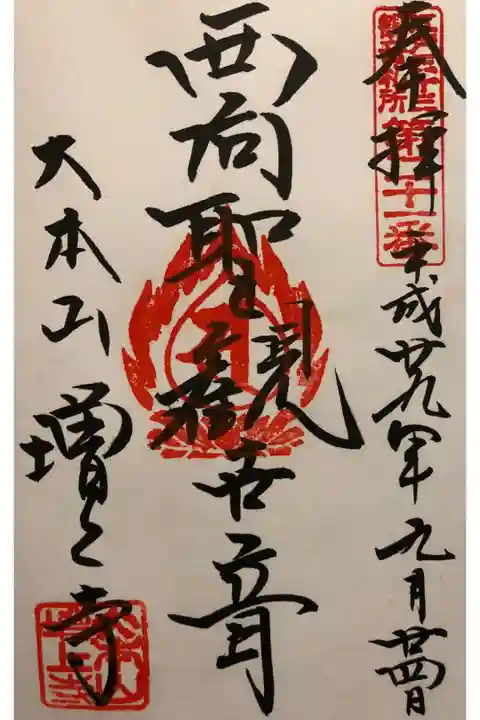 奉拝 平成廿九年九月廿四日
第二十一番
西向聖觀世音
大本山 増上寺